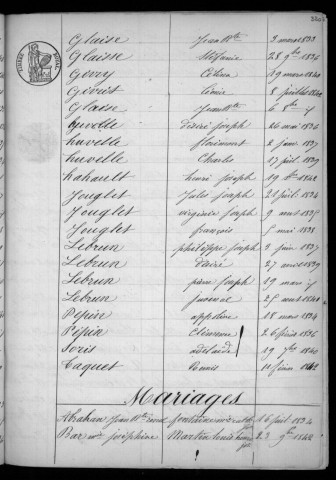 Glaise Jean Bte 3 mars 1833
Glaisse Stéfanie 28 9bre 1834
Gevry Célina 19 mars 1840
Givrit 8 juillet 1840
Glaise Jean Bte
huvelle désiré joseph 24 mai 1834
huvelle florimont 2 janv 1837
huvelle Charles 17 juil. 1839
hahault henri joseph 19 8bre 1842
Jouglet Jules joseph 21 juil. 1834
Jouglet virginie joseph 9 aout 1835
Jouglet françois 5 mai 1838
Lebrun philippe joseph 3 juin 1837
Lebrun désiré 27 avril 1839
Lebrun pierre joseph 19 mars
Lebrun juvénal 25 aout 1840
Pépin appoline 18 mars 1834
Pépin Clémence 26 1836
Soris adelaïde 19 7bre 1840
Taquet 11 juin 1842
Mariages
Abraham Jean Bte fontaine 16 juil. 1834
Bar joséphine Martin louis 23 9bre 1842